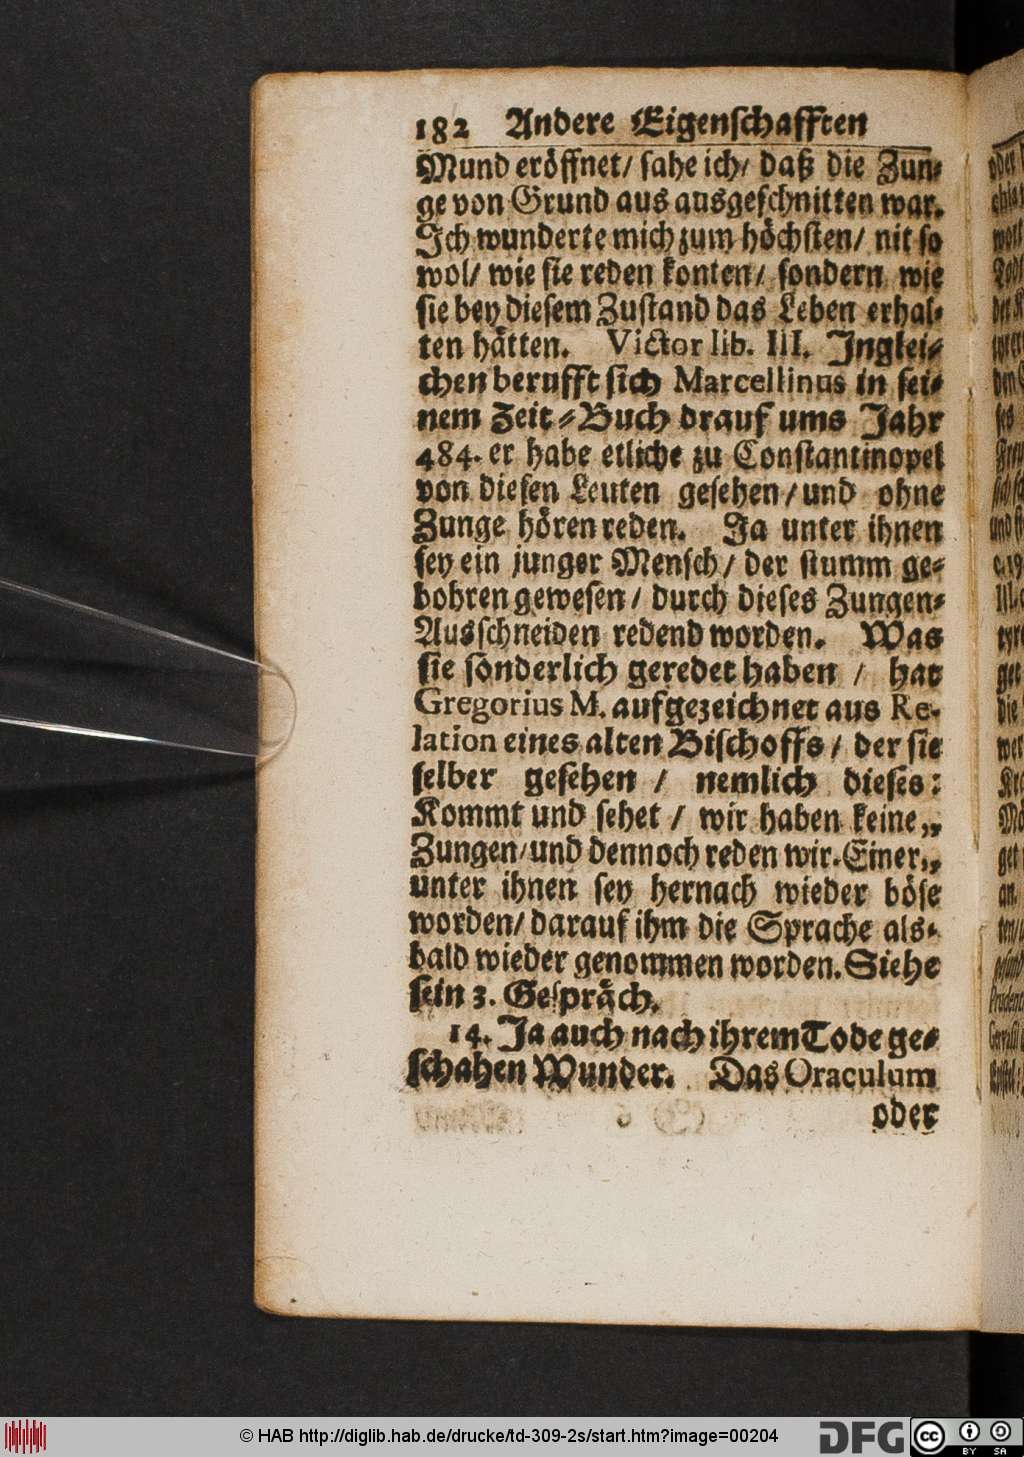 182 Andere Eigenschafften
Mund eröffnet/ sahe ich/ daß die Zun⸗
ge von Grund aus ausgeschnitten war.
Ich wunderte mich zum höchsten/ nit so
wol/ wie sie reden konten/ sondern wie
sie bey diesem Zustand das Leben erhal⸗
ten hätten. Victor lib. III. Inglei⸗
chen berufft sich Marcellinus in sei⸗
nem Zeit⸗Buch drauf ums Jahr
484. er habe etliche zu Constantinopel
von diesen Leuten gesehen/ und ohne
Zunge hören reden. Ja unter ihnen
sey ein junger Mensch/ der stumm ge⸗
bohren gewesen/ durch dieses Zungen⸗
Ausschneiden redend worden. Was
sie sonderlich geredet haben / hat
Gregorius M. aufgezeichnet aus Re⸗
lation eines alten Bischoffs/ der sie
selber gesehen / nemlich dieses:
Kommt und sehet / wir haben keine„
Zungen/ und dennoch reden wir. Einer„
unter ihnen sey hernach wieder böse
worden/ darauf ihm die Sprache als⸗
bald wieder genommen worden. Siehe
sein 3. Gespräch.
14. Ja auch nach ihrem Tode ge⸗
schahen Wunder. Das Oraculum
oder
© HAB http://diglib.hab.de/drucke/td-309-2s/start.htm?image=00204
DFG
cc BY SA